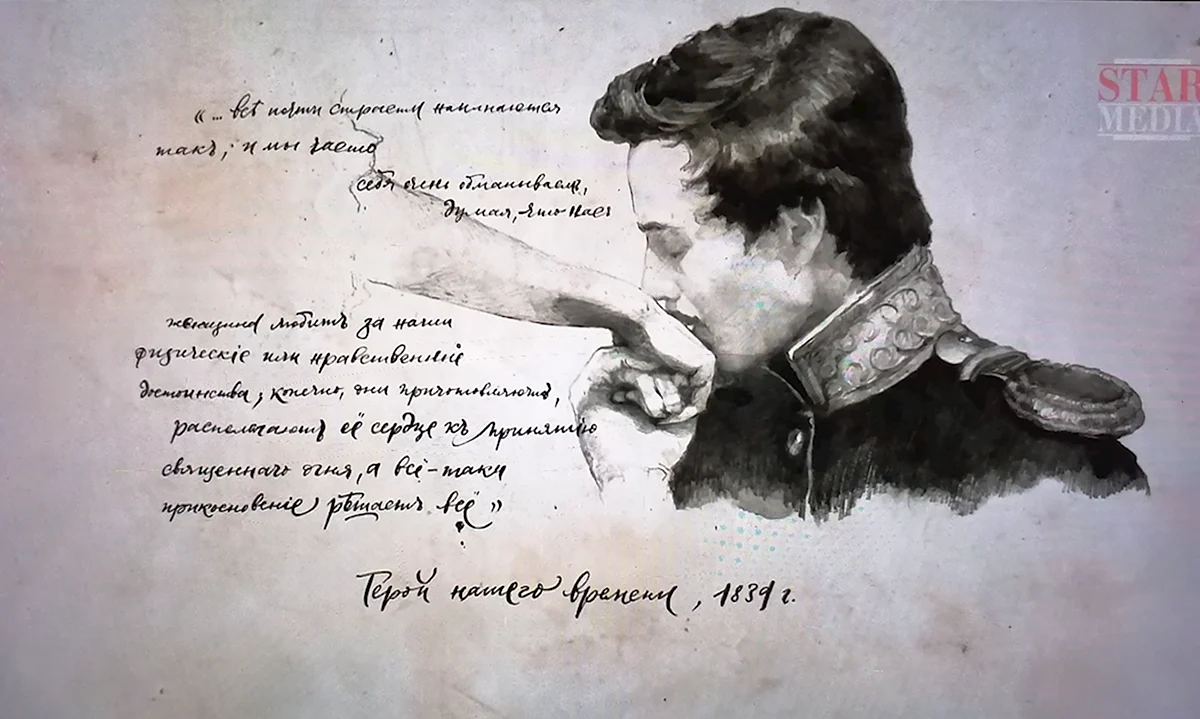 «... всѣ почти страсти начинаются
такъ, и мы часто
себя очень обманываемъ,
думая, что насъ
женщина любитъ за наши
физическіе или нравственныіе
достоинства; конечно, они приготовляютъ,
располагаютъ её сердце къ принятію
священнаго огня, а всё-таки
прикосновеніе рѣшаетъ всё»
Герой нашего времени, 1839 г.
STAR
MEDIA